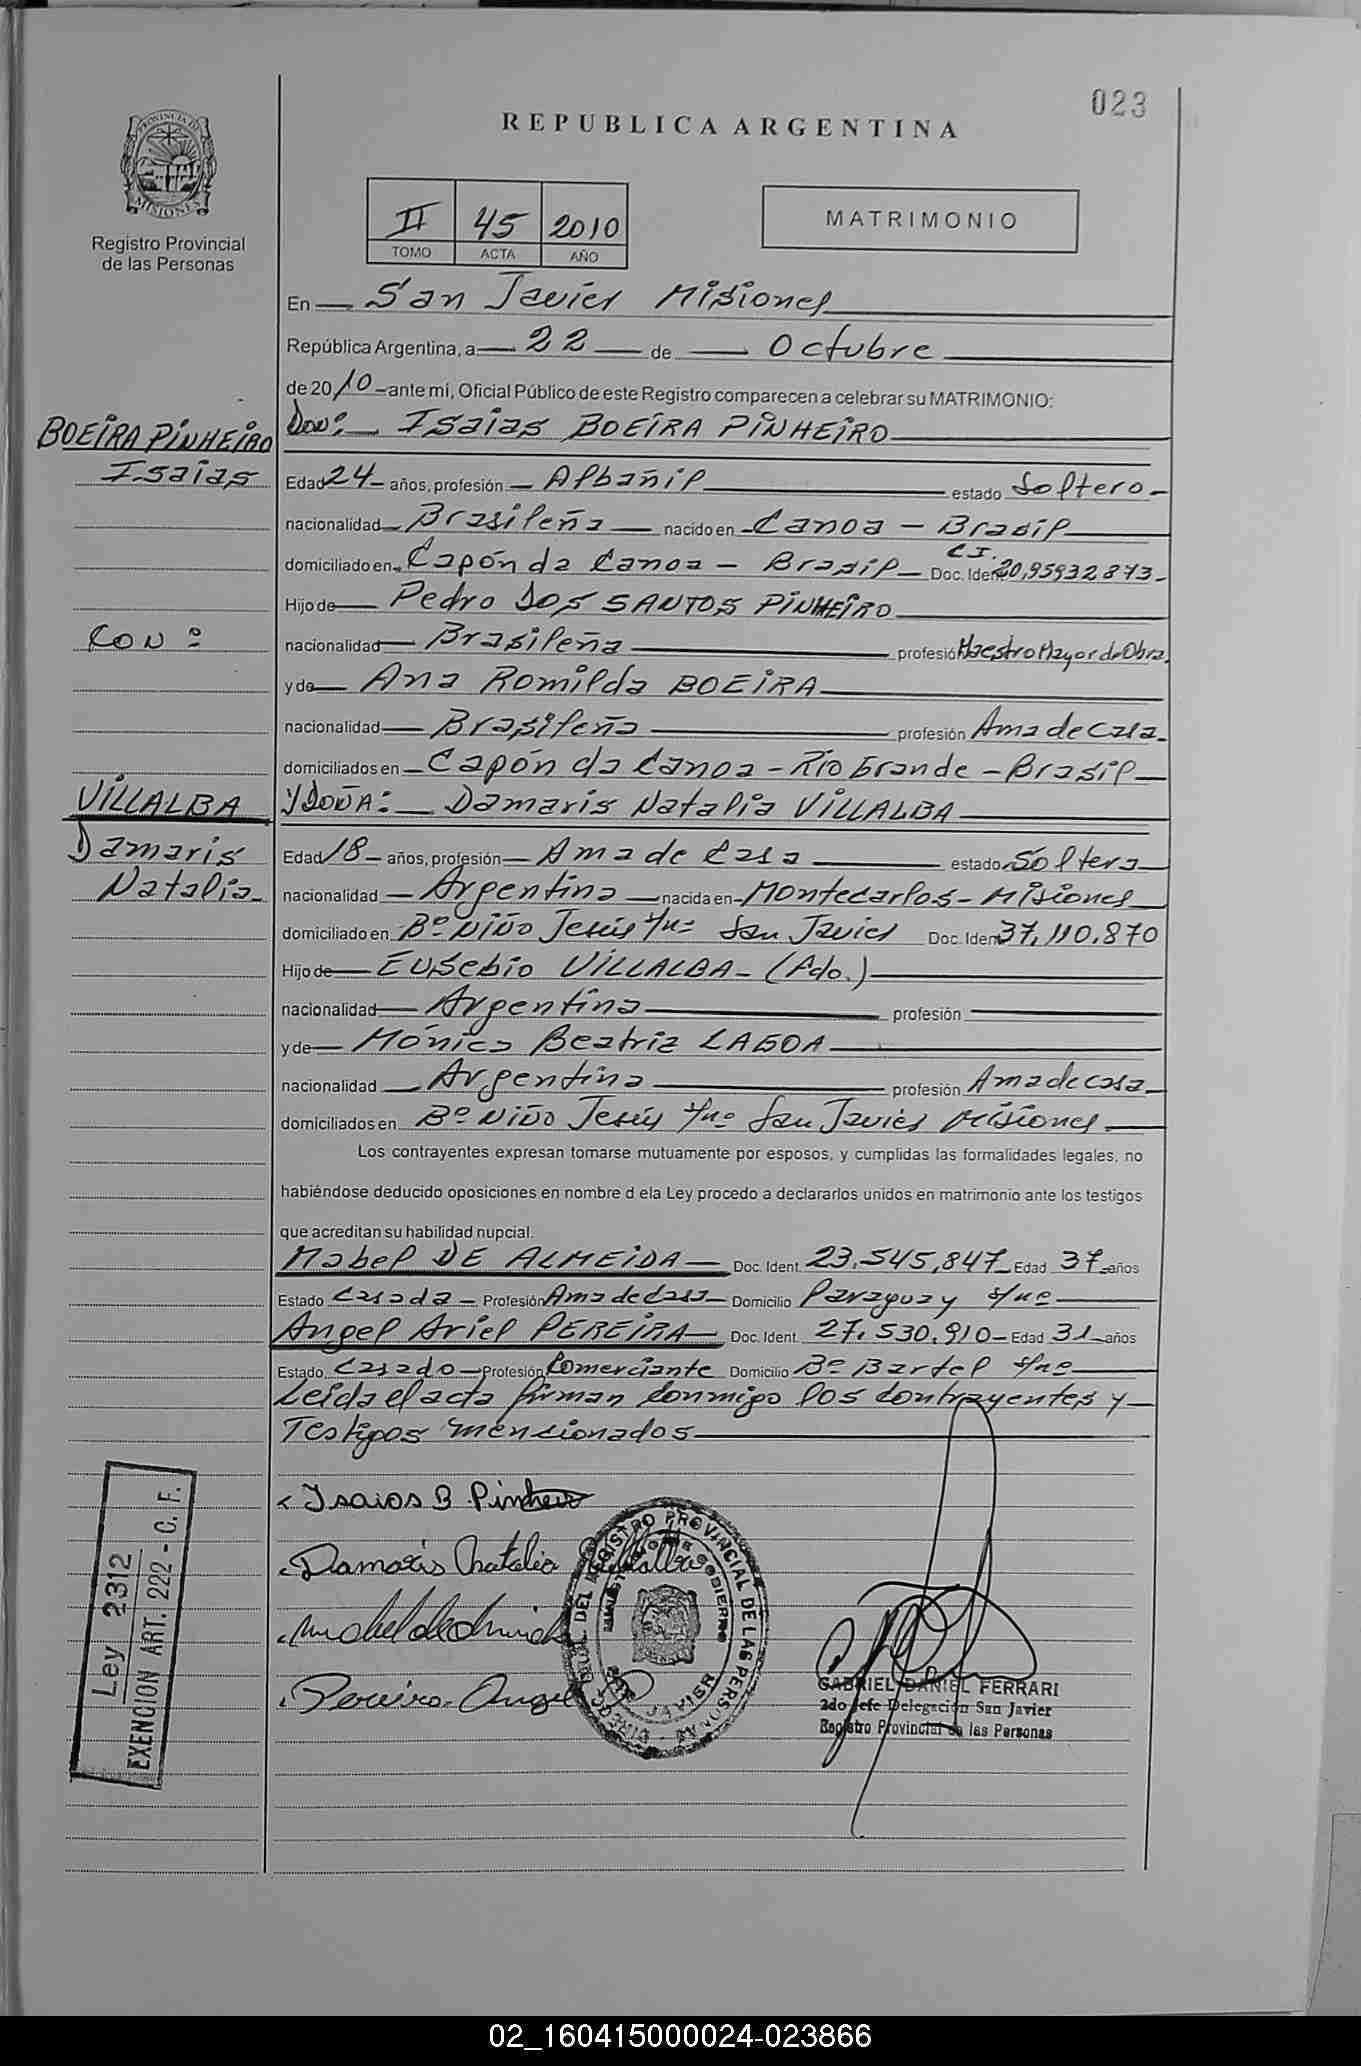 023
REPUBLICA ARGENTINA
PROVINCIA DE
MISIONES
Registro Provincial
de las Personas
II 45 2010
TOMO ACTA AÑO
MATRIMONIO
En San Javier Misiones
República Argentina, a 22 de Octubre
de 2010 ante mi, Oficial Público de este Registro comparecen a celebrar su MATRIMONIO:
BOEIRA PINHEIRO
Isaias
Don: Isaias BOEIRA PINHEIRO
Edad 24 años, profesión Albañil estado Soltero
nacionalidad Brasileña nacido en Canoa - Brasil
domiciliado en Capón da Canoa - Brasil Doc. Ident C.I. 20,95932873
Hijo de Pedro DOS SANTOS PINHEIRO
CON:
nacionalidad Brasileña profesión Maestro Mayor de Obra
y de Ana Romilda BOEIRA
nacionalidad Brasileña profesión Ama de casa
domiciliados en Capón da Canoa - Rio Grande - Brasil
VILLALBA
Damaris
Natalia
Y DOÑA: Damaris Natalia VILLALBA
Edad 18 años, profesión Ama de Casa estado Soltera
nacionalidad Argentina nacida en Montecarlos - Misiones
domiciliado en Bº Niño Jesús s/nº San Javier Doc. Ident 37,110.870
Hijo de Eusebio VILLALBA - (Fdo.)
nacionalidad Argentina profesión
y de Mónica Beatriz LAGOA
nacionalidad Argentina profesión Ama de casa
domiciliados en Bº Niño Jesús s/nº San Javier Misiones
Los contrayentes expresan tomarse mutuamente por esposos, y cumplidas las formalidades legales, no
habiéndose deducido oposiciones en nombre d ela Ley procedo a declararlos unidos en matrimonio ante los testigos
que acreditan su habilidad nupcial.
Mabel DE ALMEIDA Doc. Ident. 23.545,847 Edad 37 años
Estado Casada Profesión Ama de Casa Domicilio Paraguay s/nº
Angel Ariel PEREIRA Doc. Ident. 27.530,910 Edad 31 años
Estado Casado Profesión Comerciante Domicilio Bº Bartel s/nº
Leida el acta firman conmigo los contrayentes y
Testigos mencionados
Isaias B. Pinheiro
Damaris Natalia Villalba
Pereira Angel
Ley 2312
EXENCION ART. 222 - C. F.
DEL REGISTRO PROVINCIAL DE LAS PERSONAS
MINISTERIO DE GOBIERNO
SAN JAVIER
GABRIEL DANIEL FERRARI
2do Jefe Delegación San Javier
Registro Provincial de las Personas
02_160415000024-023866